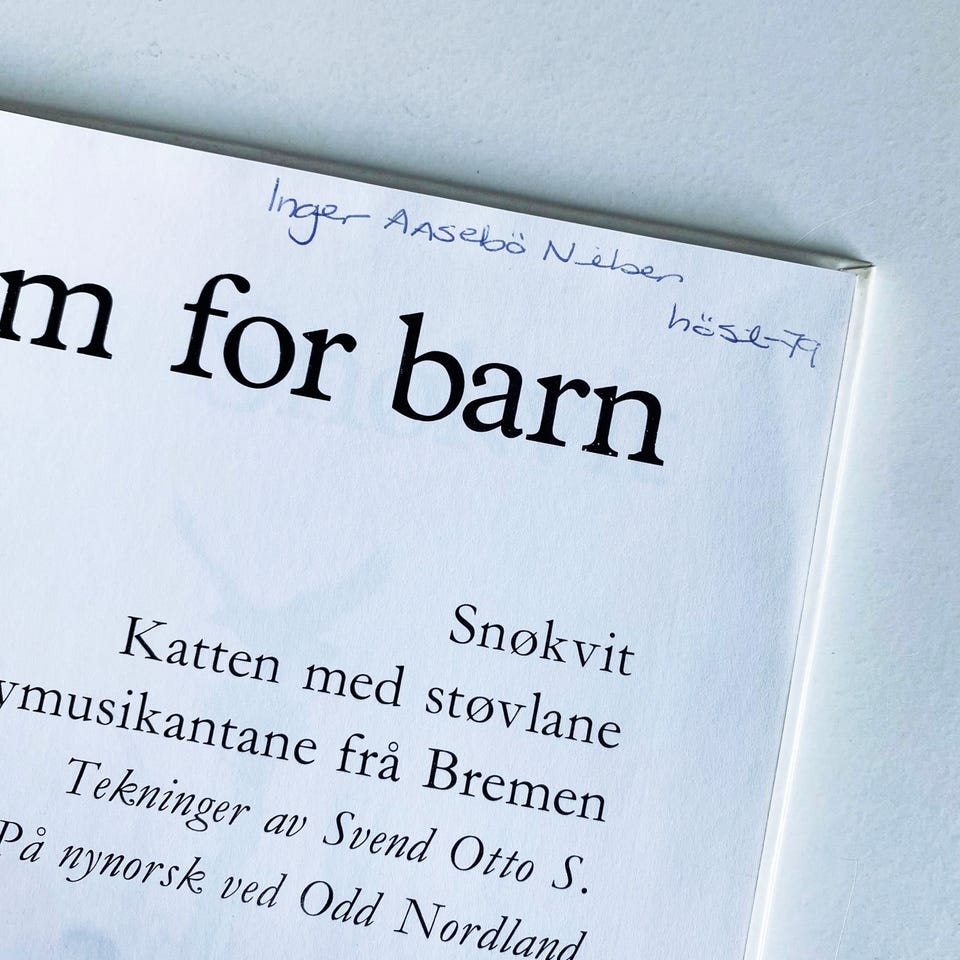 Inger Aasebö Nielsen
höst-79
m for barn
Snøkvit
Katten med støvlane
ymusikantane frå Bremen
Tekninger av Svend Otto S.
På nynorsk ved Odd Nordland